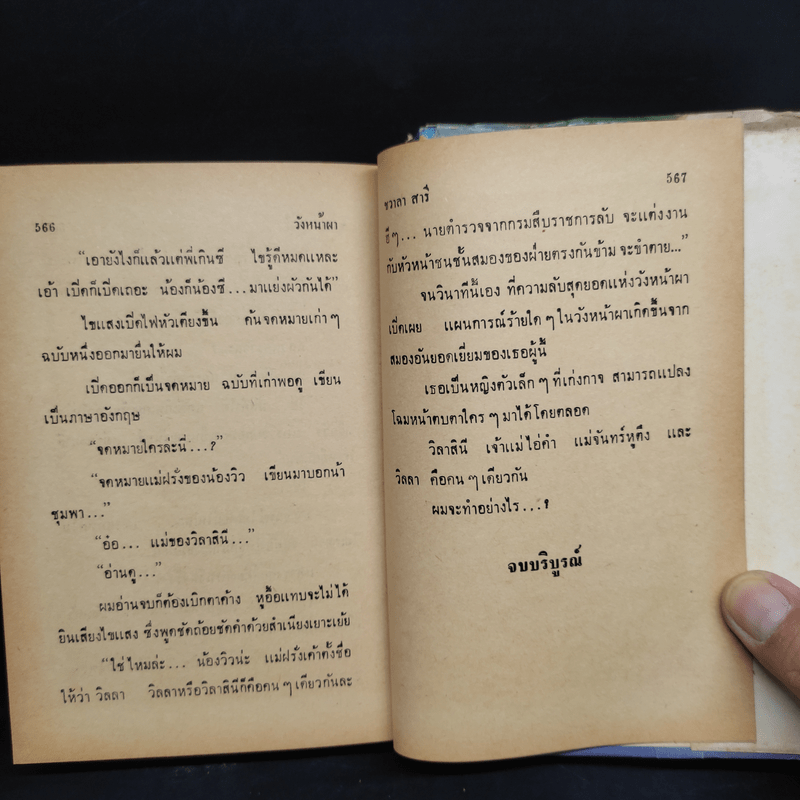 566 วังหน้าผา
“เอายังไงก็แล้วแต่พี่เกินซี ไขรู้ดีหมดแหละ
เอ้า เปิดก็เปิดเถอะ น้องก็น้องซี...มาแย่งผัวกันได้”
ไขแสงเปิดไฟหัวเตียงขึ้น ค้นจดหมายเก่าๆ
ฉบับหนึ่งออกมายื่นให้ผม
เปิดออกก็เป็นจดหมาย ฉบับที่เก่าพอดู เขียน
เป็นภาษาอังกฤษ
“จดหมายใครล่ะนี่...?”
“จดหมายแม่ฝรั่งของน้องวิว เขียนมาบอกน้า
ชุมพา...”
“อ๋อ... แม่ของวิลาสินี...”
“อ่านดู...”
ผมอ่านจบก็ต้องเบิกตาค้าง หูอื้อแทบจะไม่ได้
ยินเสียงไขแสง ซึ่งพูดชัดถ้อยชัดคำด้วยสำเนียงเยาะเย้ย
“ใช่ไหมล่ะ... น้องวิวน่ะ แม่ฝรั่งเค้าตั้งชื่อ
ให้ว่า วิลลา วิลลาหรือวิลาสินีก็คือคนๆ เดียวกันละ
ชวาลา สารี 567
ซีๆ... นายตำรวจจากกรมสืบราชการลับ จะแต่งงาน
กับหัวหน้าชนชั้นสมองของฝ่ายตรงกันข้าม จะขำตาย...”
จนวินาทีนี้เอง ที่ความลับสุดยอดแห่งวังหน้าผา
เปิดเผย แผนการณ์ร้ายใดๆ ในวังหน้าผาเกิดขึ้นจาก
สมองอันยอดเยี่ยมของเธอผู้นี้
เธอเป็นหญิงตัวเล็กๆ ที่เก่งกาจ สามารถแปลง
โฉมหน้าตบตาใครๆ มาได้โดยตลอด
วิลาสินี เจ้าแม่ไอ่คำ แม่จันทร์หุตึง และ
วิลลา คือคนๆ เดียวกัน
ผมจะทำอย่างไร...?
จบบริบูรณ์